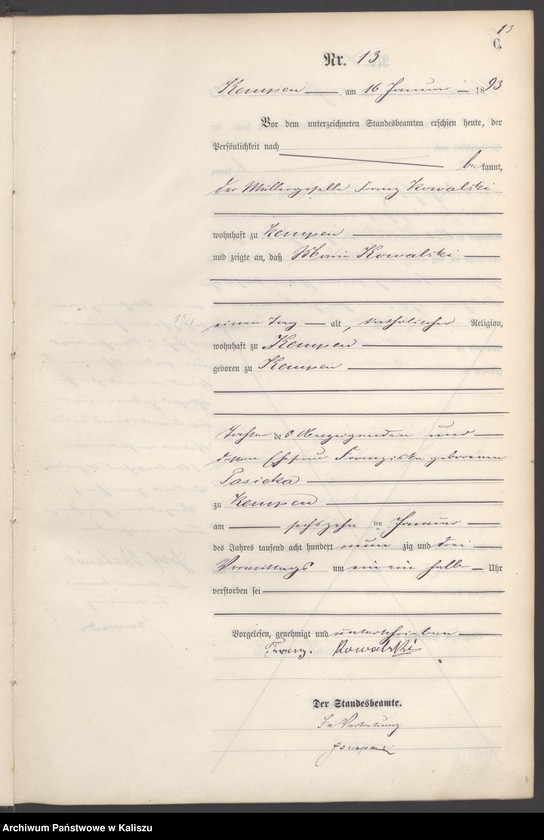 13
C.
Nr. 13
Kempen am 16 Januar 1893
Vor dem unterzeichneten Standesbeamten erschien heute, der
Persönlichkeit nach
bekannt,
der Müllergeselle Franz Kowalski
wohnhaft zu Kempen
und zeigte an, daß Maria Kowalski
einen Tag alt, katholischer Religion,
wohnhaft zu Kempen
geboren zu Kempen
Tochter des Anzeigenden und
dessen Ehefrau Franziska geborenen
Pasieka
zu Kempen
am sechszehn ten Januar
des Jahres tausend acht hundert neun zig und drei
Vormittags um ein ein halb Uhr
verstorben sei
Vorgelesen, genehmigt und unterschrieben
Franz. Kowalski
Der Standesbeamte.
In Vertretung
Archiwum Państwowe w Kaliszu